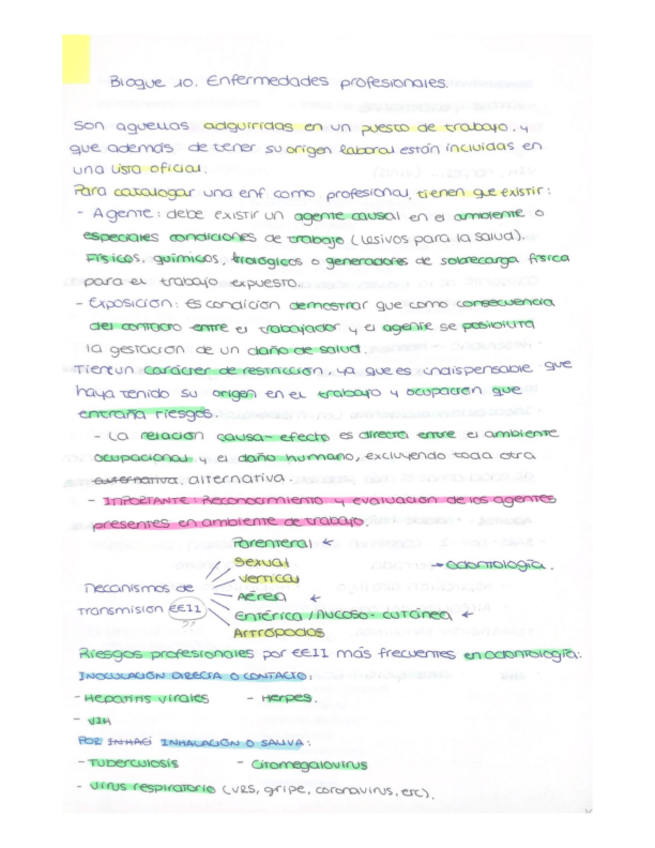 Bloque 10. Enfermedades profesionales.
Son aquellas adquiridas en un puesto de trabajo, y
que además de tener su origen laboral están incluidas en
una lista oficial.
Para catalogar una enf. como profesional, tienen que existir:
- Agente: debe existir un agente causal en el ambiente o
especiales condiciones de trabajo (lesivos para la salud).
Físicos, químicos, biológicos o generadores de sobrecarga física
para el trabajo expuesto.
- Exposición: es condición demostrar que como consecuencia
del contacto entre el trabajador y el agente se posibilita
la gestación de un daño de salud.
Tienen un carácter de restricción, ya que es indispensable que
haya tenido su origen en el trabajo y ocupación que
entraña riesgos.
- La relación causa-efecto es directa entre el ambiente
ocupacional y el daño humano, excluyendo toda otra
alternativa.
- IMPORTANTE: Reconocimiento y evaluación de los agentes
presentes en ambiente de trabajo.
Parenteral ←
Sexual
→ Odontología.
Vertical
Mecanismos de
Aérea ←
transmisión EEII
Entérica / Mucoso-cutánea ←
??
Artrópodos
Riesgos profesionales por EEII más frecuentes en odontología:
INOCULACIÓN DIRECTA O CONTACTO:
- Hepatitis virales - Herpes.
- VIH
POR INHAGI INHALACIÓN O SALIVA:
- Tuberculosis - Citomegalovirus
- Virus respiratorio (VRS, gripe, coronavirus, etc).